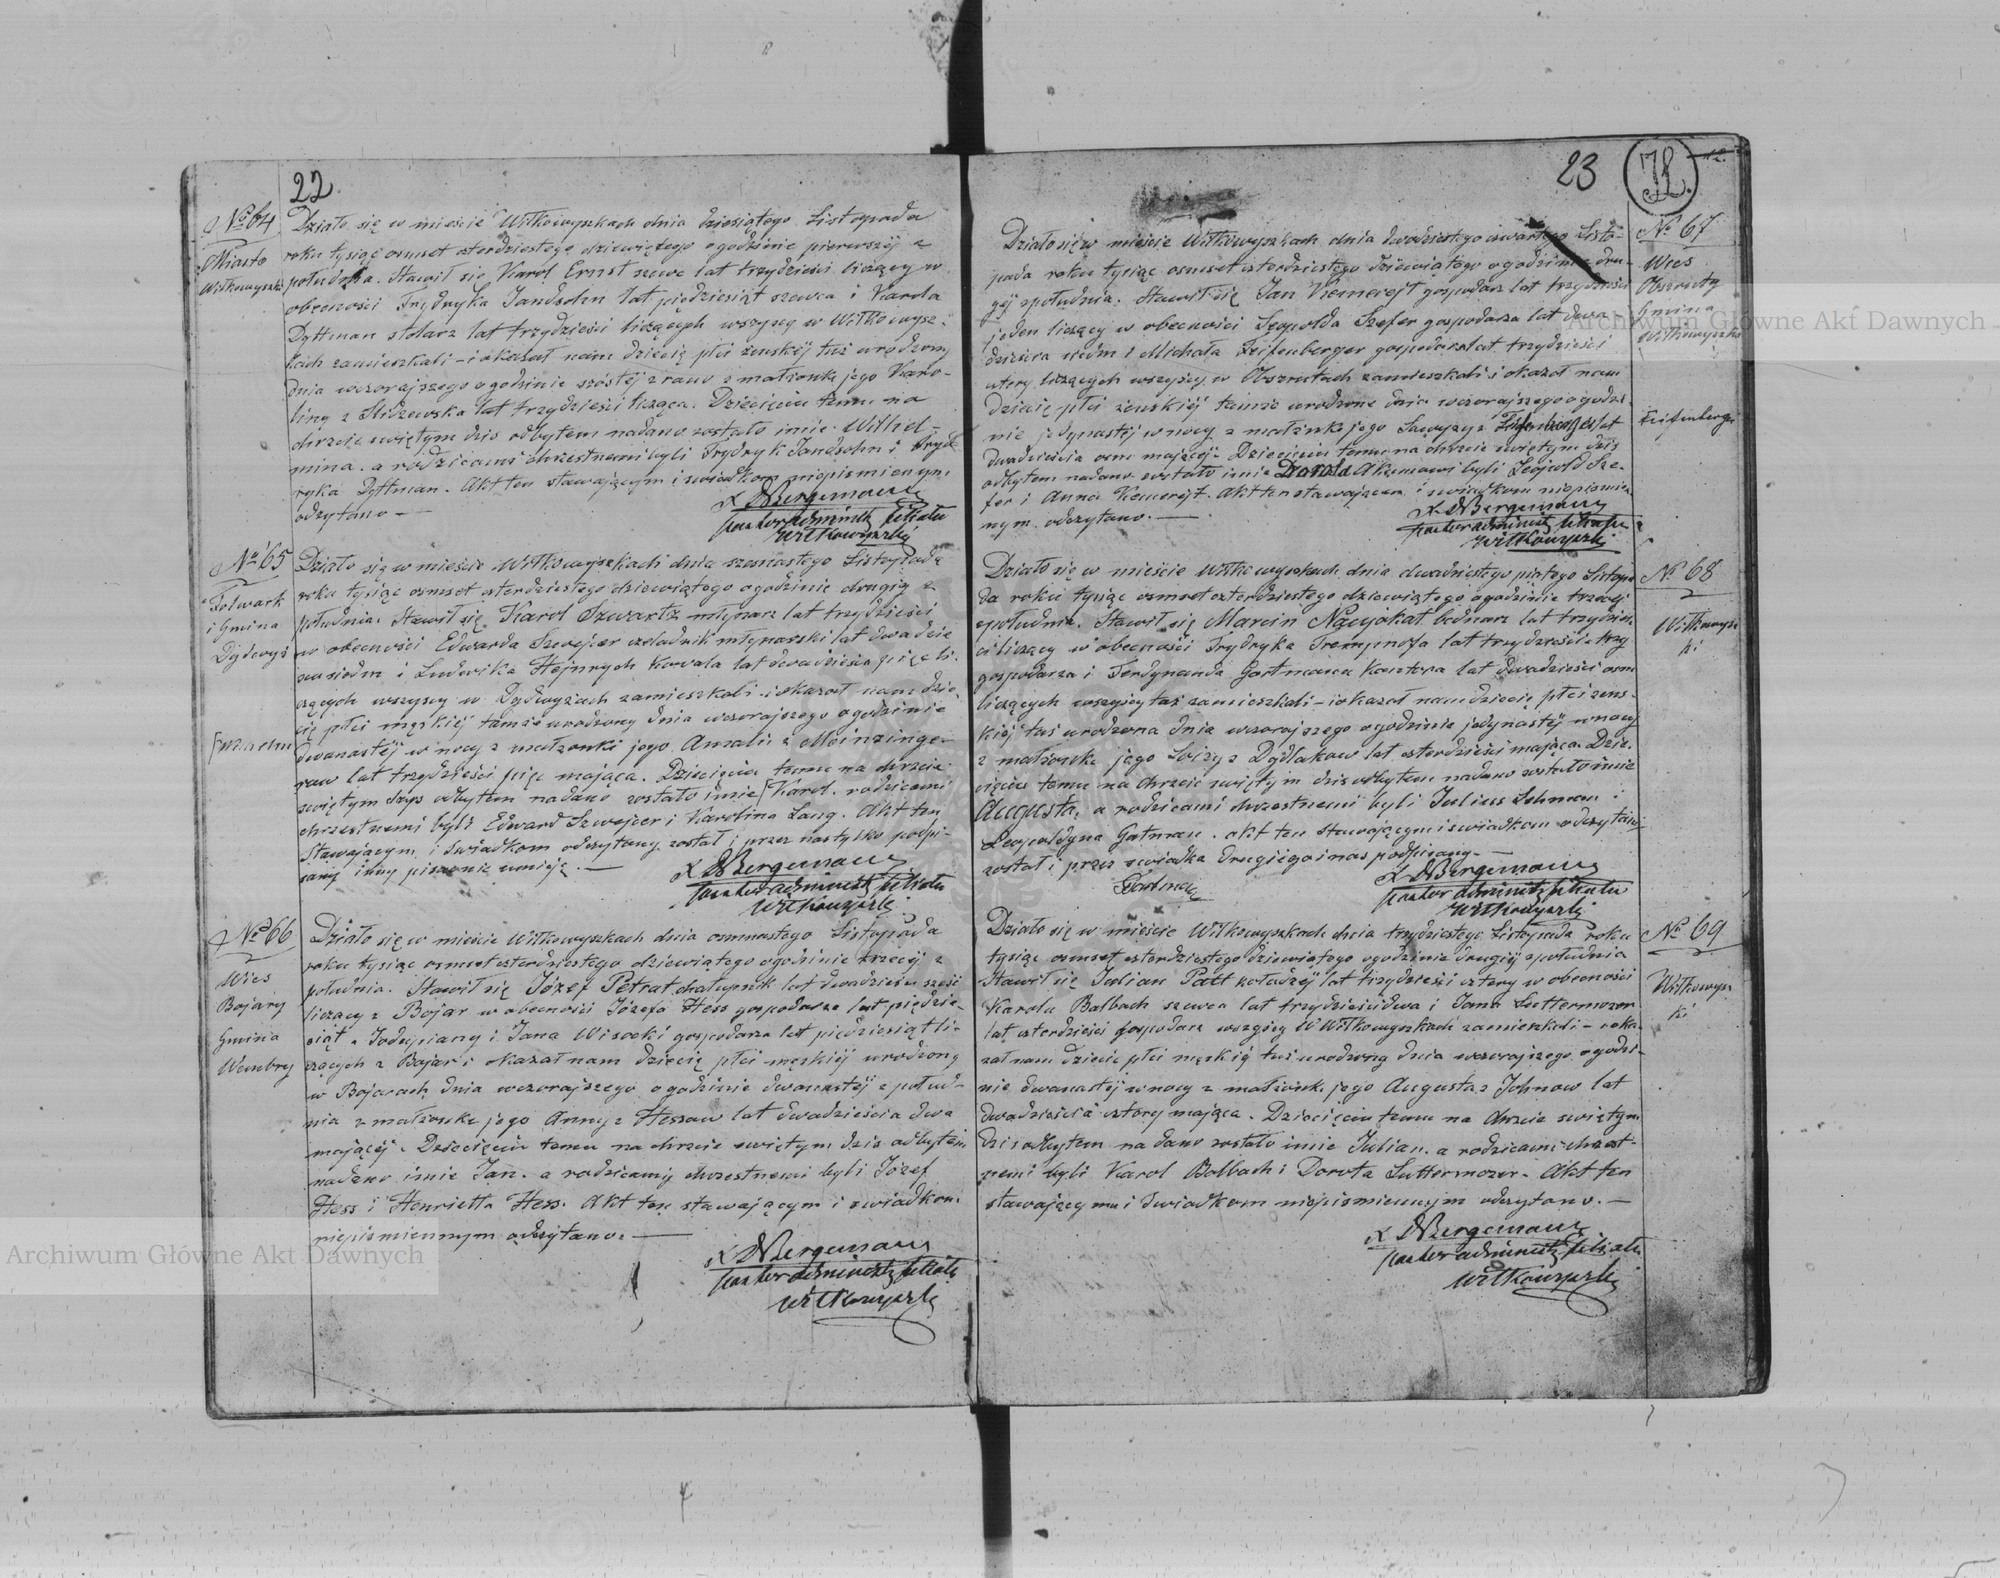 22
№ 64
Miasto
Wiłkowyszki
Działo się w mieście Wiłkowyszkach dnia dziesiątego Listopada
roku tysiąc osmset czterdziestego dziewiątego o godzinie pierwszéj z
południa. Stawił się Karol Ernst szewc lat trzydzieści liczący w
obecności Frydryka Jandsohn lat pięćdziesiąt szewca i Karola
Dyttman stolarz lat trzydzieści liczących wszyscy w Wiłkowysz-
kach zamieszkali – i okazał nam dziecię płci żenskiéj tuż urodzony
dnia wczorajszego o godzinie szóstéj z rana z małżonki jego Karo-
liny z lat trzydzieści licząca. Dziecięciu temu na
chrzcie swiętym dzis odbytem nadano zostało imie Wilhel-
mina. a rodzicami chrzestnemi byli Frydryk Jandsohn i Fryd
ryka Dyttman. Akt ten stawającym i swiadkom niepismiennym
odczytano —
X DBergemann
pastor administ filiału
Wiłkowyszki
№ 65
Folwark
i Gmina
Dydwyż
[Wilhelm
Działo się w mieście Wiłkowyszkach dnia szesnastego Listopada
roku tysiąc osmset czterdziestego dziewiątego o godzinie drugiej z
południa. Stawił się Karol Szwartz młynarz lat trzydzieści
w obecności Edwarda Szwejcer czeladnik młynarski lat dwadzie
scia siedm i Ludwika Hejnrych kowala lat dwadzieścia pięć li-
czących wszyscy w Dydwyżach zamieszkali i okazał nam dzie-
cię płci męskiéj tamże urodzony dnia wczorajszego o godzinie
dwanastéj w nocy z małżonki jego Amalii z Meinzinge-
row lat trzydzieści pięc mająca. Dziecięciu temu na chrzcie
swiętym dzys odbytem nadano zostało imie [Karol. rodzicami
chrzestnemi byli Edward Szwejcer i Karolina Lang. Akt ten
Stawającym i Swiadkom odczytany został i przez nas tylko podpi-
sany inny pisac nie umieją. —
X DBergemann
pastor administ filiału
Wiłkowyszki
№ 66
Wies
Bojary
Gmina
Wembry
Działo się w mieście Wiłkowyszkach dnia osmnastego Listopada
roku tysiąc osmset czterdziestego dziewiątego o godzinie trzeciéj z
południa. Stawił się Józef Petrat chałupnik lat dwadzieścia sześć
liczący z Bojar w obecności Józefa Hess gospodarza lat pięćdzie-
siąt z Jodupiany i Jana Wisocki gospodarza lat pięćdziesiąt li-
czących z Bojar i okazał nam dziecię płci męskiéj urodzony
w Bojarach dnia wczorajszego o godzinie dwanastéj z połud-
nia z małżonki jego Anny z Hessow lat dwadzieścia dwa
mającéj. Dziecięciu temu na chrzcie swiętym dzis odbytem
nadano imie Jan. a rodzicamy chrzestnemi byli Józef
Hess i Henrietta Hess. Akt ten stawającym i swiadkom
niepismiennym odczytano. —
X DBergemann
pastor administ filiału
Wiłkowyszki
23
№ 67
Wies
Obszruty
Gmina
Wiłkowyszki
Fejfenberger
Działo się w mieście Wiłkowyszkach dnia dwudziestego czwartego Listo-
pada roku tysiąc osmset czterdziestego dziewiątego o godzinie dru-
géj z południa. Stawił się Jan Kemerejt gospodarz lat trzydzieści
jeden liczący w obecności Leopolda Szefer gospodarza lat dwa-
dzieścia siedm i Michała Fejfenberger gospodarz lat trzydzieści
cztery liczących wszyscy w Obszrutach zamieszkali i okazał nam
dziecię płci żenskiéj tamże urodzone dnia wczorajszego o godzi-
nie jedynastéj w nocy z małżonki jego lat
dwadzieścia osm mającéj. Dziecięciu temu na chrzcie swiętym dzis
odbytem nadano zostało imie Dorota A kumami byli Leopold Sze-
fer i Anna Kemerejt. Akt ten stawającem i swiadkom niepismien-
nym odczytano. —
X DBergemann
pastor administ filiału
Wiłkowyszki
№ 68
Wiłkowysz
ki
Działo się w mieście Wiłkowyszkach dnia dwudziestego piątego Listopa
da roku tysiąc osmset czterdziestego dziewiątego o godzinie trzeciéj
z południa. Stawił się Marcin Naujokat bednarz lat trzydzieś
ci liczący w obecności Frydryka Trempnofa lat trzydzieści trzy
gospodarza i Ferdynanda Gastmana Kantora lat dwadzieścia osm
liczących wszyscy tuż zamieszkali – i okazał nam dziecię płci żens-
kiéj tuż urodzona dnia wczorajszego o godzinie jedynastéj w nocy
z małżonki jego Loizy z Dydlakow lat czterdzieści mająca. Dzie-
cięciu temu na chrzcie swiętym dzis odbytem nadano zostało imie
Augusta, a rodzicami chrzestnemi byli Julius Lehman i
Leopoldyna Gatman. Akt ten stawającym i swiadkom odczytany
został i przez swiadka drugiego i nas podpisany. —
Gastman
X DBergemann
pastor administ filiału
Wiłkowyszki
№ 69
Wiłkowysz
ki
Działo się w mieście Wiłkowyszkach dnia trzydziestego Listopada roku
tysiąc osmset czterdziestego dziewiątego o godzinie drugiéj z południa
Stawił się Julian Patt kołodzéj lat trzydzieści cztery w obecności
Karola Balbach szewca lat trzydzieści dwa i Jana Luttermozer
lat czterdzieści gospodarz wszyscy w Wiłkowyszkach zamieszkali – i oka-
zał nam dziecię płci męskiéj tuż urodzony dnia wczorajszego o godzi-
nie dwanastéj w nocy z małżonki jego Augusta z Johnow lat
dwadzieścia cztery mająca. Dziecięciu temu na chrzcie swiętym
dzis odbytem nadano zostało imie Julian. a rodzicami chrzest-
nemi byli Karol Balbach i Dorota Luttermozer. Akt ten
stawającymu i Swiadkom niepismiennym odczytano. —
X DBergemann
pastor administ filiału
Wiłkowyszki
Archiwum Główne Akt Dawnych
Archiwum Główne Akt Dawnych